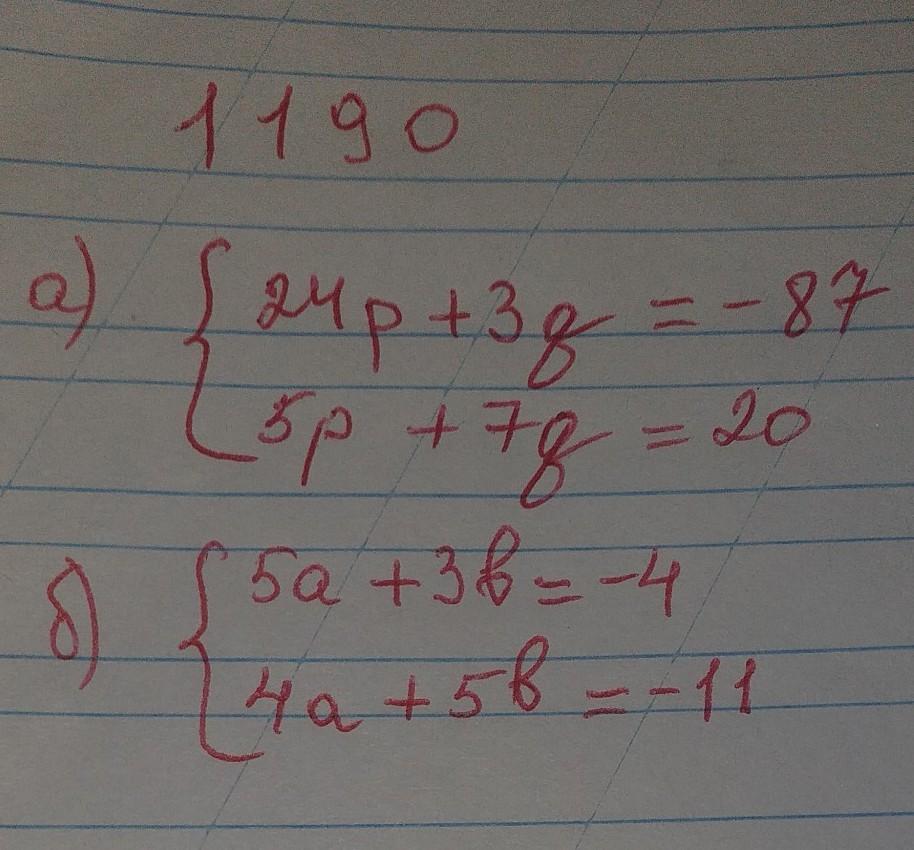 1190
а) 24p + 3q = -87
5p + 7q = 20
б) 5a + 3b = -4
4a + 5b = -11